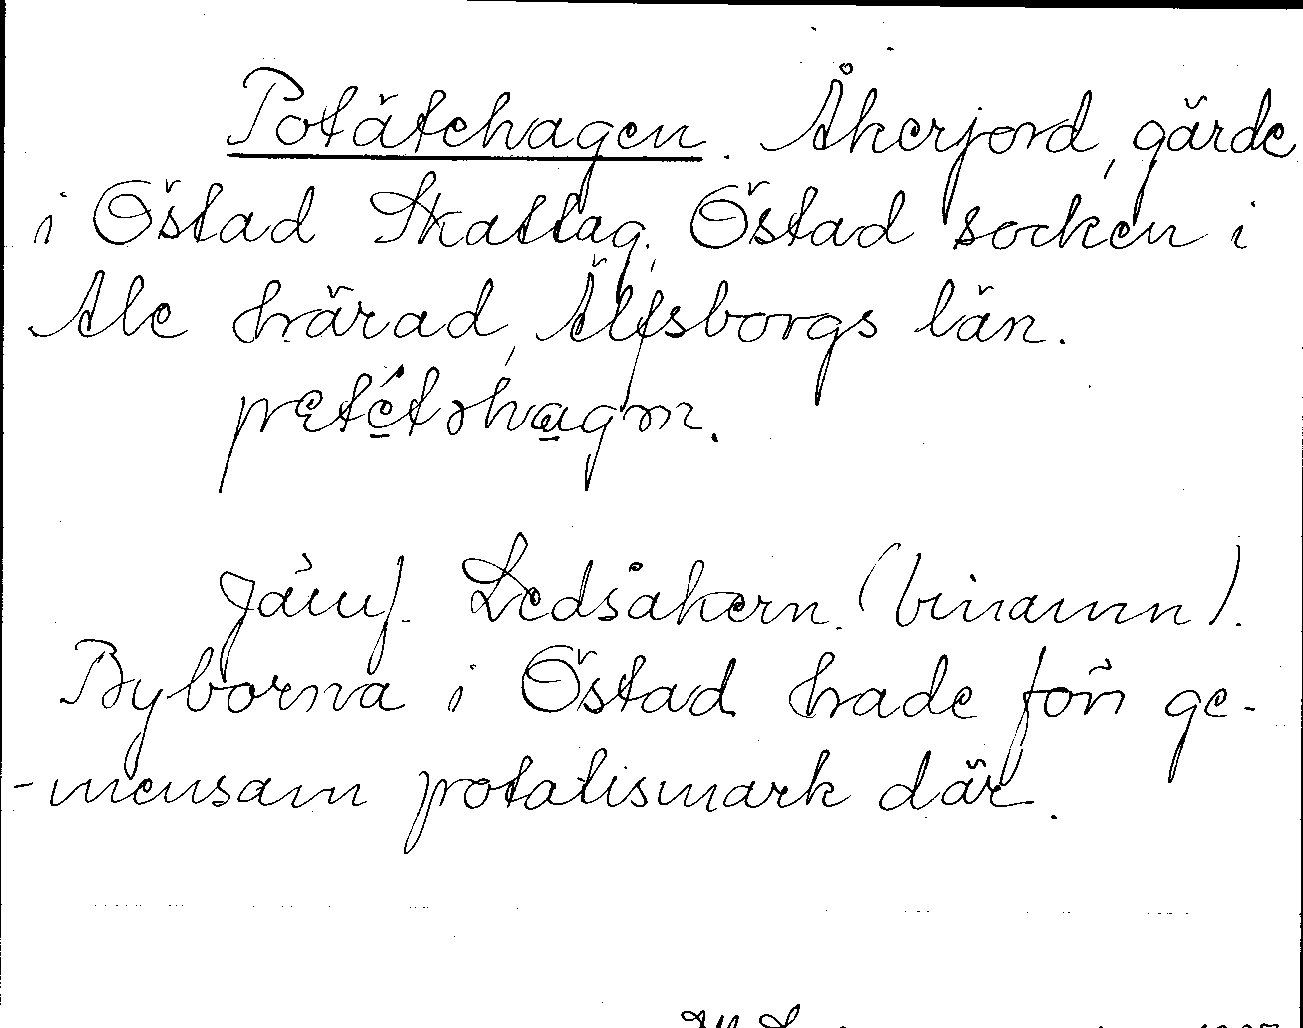 Potätehagen. Åkerjord, gärde
i Östad Skattag. Östad socken i
Ale härad, Älfsborgs län.
Jämf. Ledsåkern. (binamn).
Byborna i Östad hade förr ge-
-mensam potatismark där.